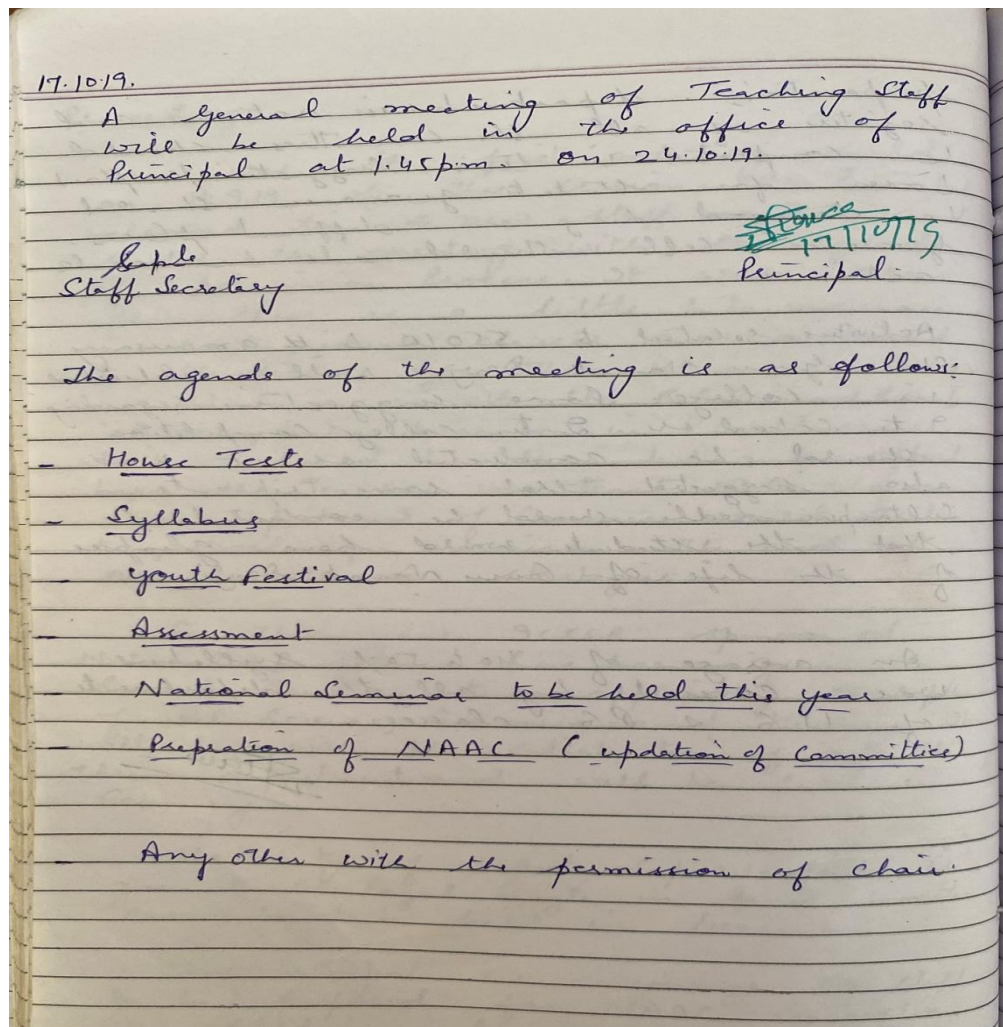 17.10.19.
A General meeting of Teaching Staff
will be held in the office of
Principal at 1.45 p.m. on 24.10.19.
17/10/19
Staff Secretary Principal.
The agenda of the meeting is as follows:
- House Tests
- Syllabus
- Youth Festival
- Assessment
- National Seminar to be held this year
- Prepration of NAAC (updation of Committies)
- Any other with the permission of chair.